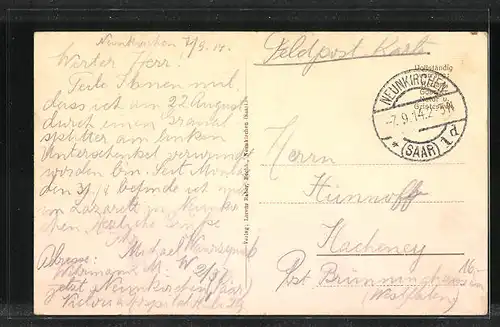 Neunkirchen 7/9.14.
Werter Herr!
Teile Ihnen mit,
dass ich am 22 August
durch einen Granat
splitter am linken
Unterschenkel verwundet
worden bin. Seit Montag
den 31/8 befinde ich mich
im Lazarett in Neunkir
chen Herzliche Grüsse
Michael
Adresse:
Wehrmann M. W 2/37
jetzt Neunkirchen Saar
Feldpost Karte
Vollständig
NEUNKIRCHEN
-7.9.14.2-3N
* (SAAR) 1d
Herrn
Hünnoff
Hacheney
Post Brünninghausen
(Westfalen)
16-